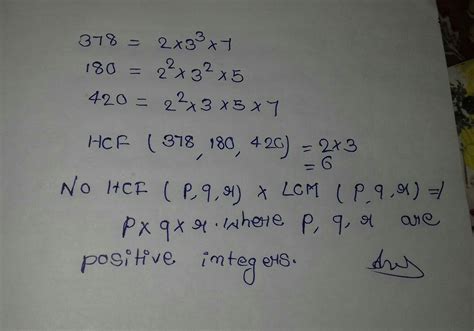 378 = 2×3³×7
180 = 2²×3²×5
420 = 2²×3×5×7
HCF (378, 180, 420) = 2×3
= 6
No HCF (P, q, r) × LCM (P, q, r) ≠
P×q×r. where P, q, r are
positive integers. Ans